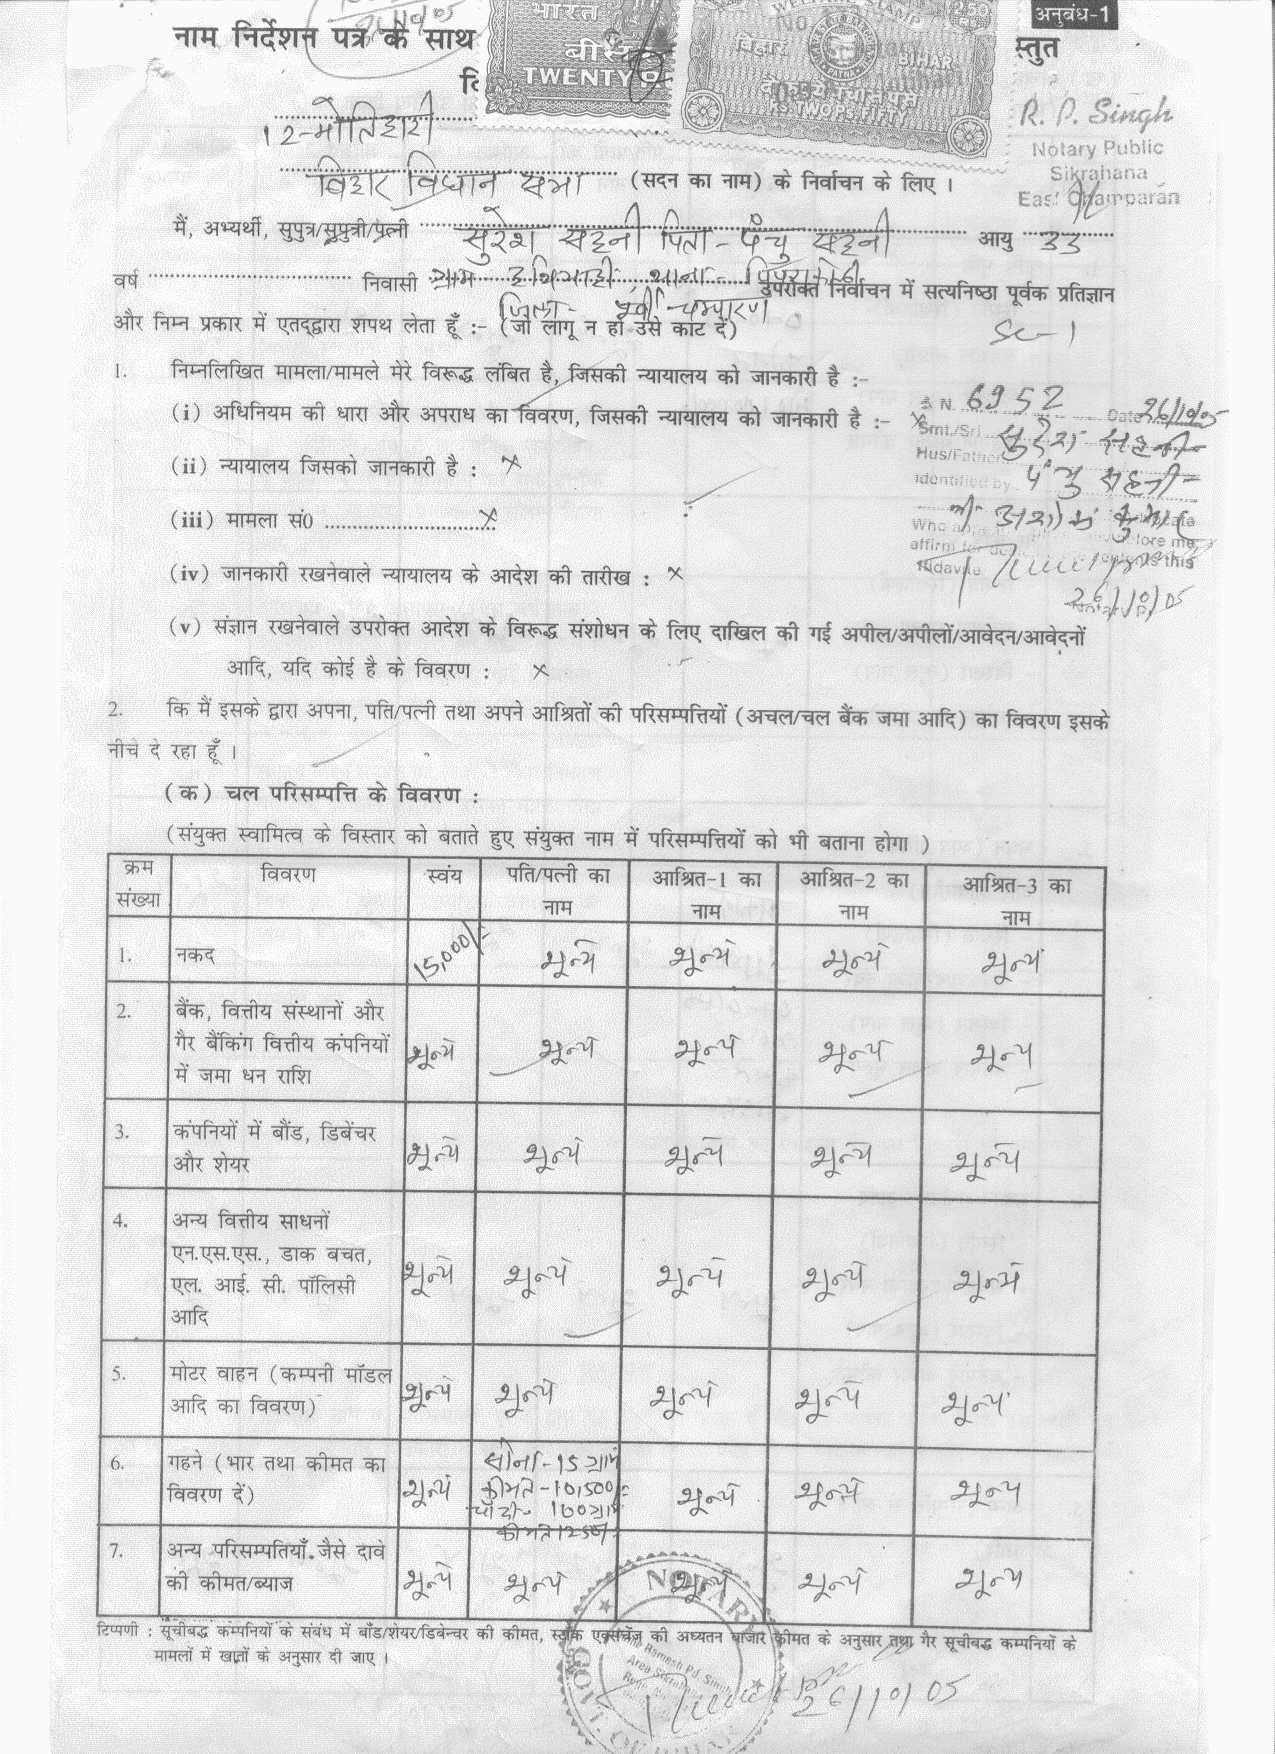 अनुबंध-1
26/10/05
नाम निर्देशन पत्र के साथ
स्तुत
भारत
बीस
TWENTY
WELFARE STAMP
2.50
बिहार
BIHAR
RS. TWO PS. FIFTY
12-मोतिहारी
R. P. Singh
Notary Public
Sikrahana
East Champaran
बिहार विधान सभा (सदन का नाम) के निर्वाचन के लिए ।
मैं, अभ्यर्थी, सुपुत्र/सुपुत्री/पत्नी सुरेश सहनी पिता - पंचु सहनी आयु 33
वर्ष निवासी ग्राम थाना - पिपराकोठी उपरोक्त निर्वाचन में सत्यनिष्ठा पूर्वक प्रतिज्ञान
जिला - पूर्वी - चम्पारण
और निम्न प्रकार में एतद्द्वारा शपथ लेता हूँ :- (जो लागू न हो उसे काट दें)
1. निम्नलिखित मामला/मामले मेरे विरूद्ध लंबित है, जिसकी न्यायालय को जानकारी है :-
(i) अधिनियम की धारा और अपराध का विवरण, जिसकी न्यायालय को जानकारी है :- ×
N. 6952 Date 26/10/05
Smt./Sri सुरेश सहनी
Hus/Father पंचु सहनी
Identified by
(ii) न्यायालय जिसको जानकारी है : ×
(iii) मामला सं0 ×
श्री अशोक कुमार
26/10/05
(iv) जानकारी रखनेवाले न्यायालय के आदेश की तारीख : ×
(v) संज्ञान रखनेवाले उपरोक्त आदेश के विरूद्ध संशोधन के लिए दाखिल की गई अपील/अपीलों/आवेदन/आवेदनों
आदि, यदि कोई है के विवरण : ×
2. कि मैं इसके द्वारा अपना, पति/पत्नी तथा अपने आश्रितों की परिसम्पत्तियों (अचल/चल बैंक जमा आदि) का विवरण इसके
नीचे दे रहा हूँ ।
(क) चल परिसम्पत्ति के विवरण :
(संयुक्त स्वामित्व के विस्तार को बताते हुए संयुक्त नाम में परिसम्पत्तियों को भी बताना होगा )
क्रम संख्या विवरण स्वंय पति/पत्नी का नाम आश्रित-1 का नाम आश्रित-2 का नाम आश्रित-3 का नाम
1. नकद 15,000/- शून्य शून्य शून्य शून्य
2. बैंक, वित्तीय संस्थानों और
गैर बैंकिंग वित्तीय कंपनियों शून्य शून्य शून्य शून्य शून्य
में जमा धन राशि
3. कंपनियों में बौंड, डिबेंचर
और शेयर शून्य शून्य शून्य शून्य शून्य
4. अन्य वित्तीय साधनों
एन.एस.एस., डाक बचत,
एल. आई. सी. पॉलिसी शून्य शून्य शून्य शून्य शून्य
आदि
5. मोटर वाहन (कम्पनी मॉडल
आदि का विवरण) शून्य शून्य शून्य शून्य शून्य
6. गहने (भार तथा कीमत का
विवरण दें) शून्य
सोना - 15 ग्राम
कीमत - 10,500/-
चाँदी - 100 ग्राम
कीमत 1250/-
शून्य शून्य शून्य
7. अन्य परिसम्पतियाँ जैसे दावे
की कीमत/ब्याज शून्य शून्य शून्य शून्य शून्य
टिप्पणी : सूचीबद्ध कम्पनियों के संबंध में बाँड/शेयर/डिबेन्चर की कीमत, स्टॉक एक्सचेंज की अध्यतन बाजार कीमत के अनुसार तथा गैर सूचीबद्ध कम्पनियों के
मामलों में खातों के अनुसार दी जाए ।
NOTARY
GOVT. OF BIHAR
26/10/05